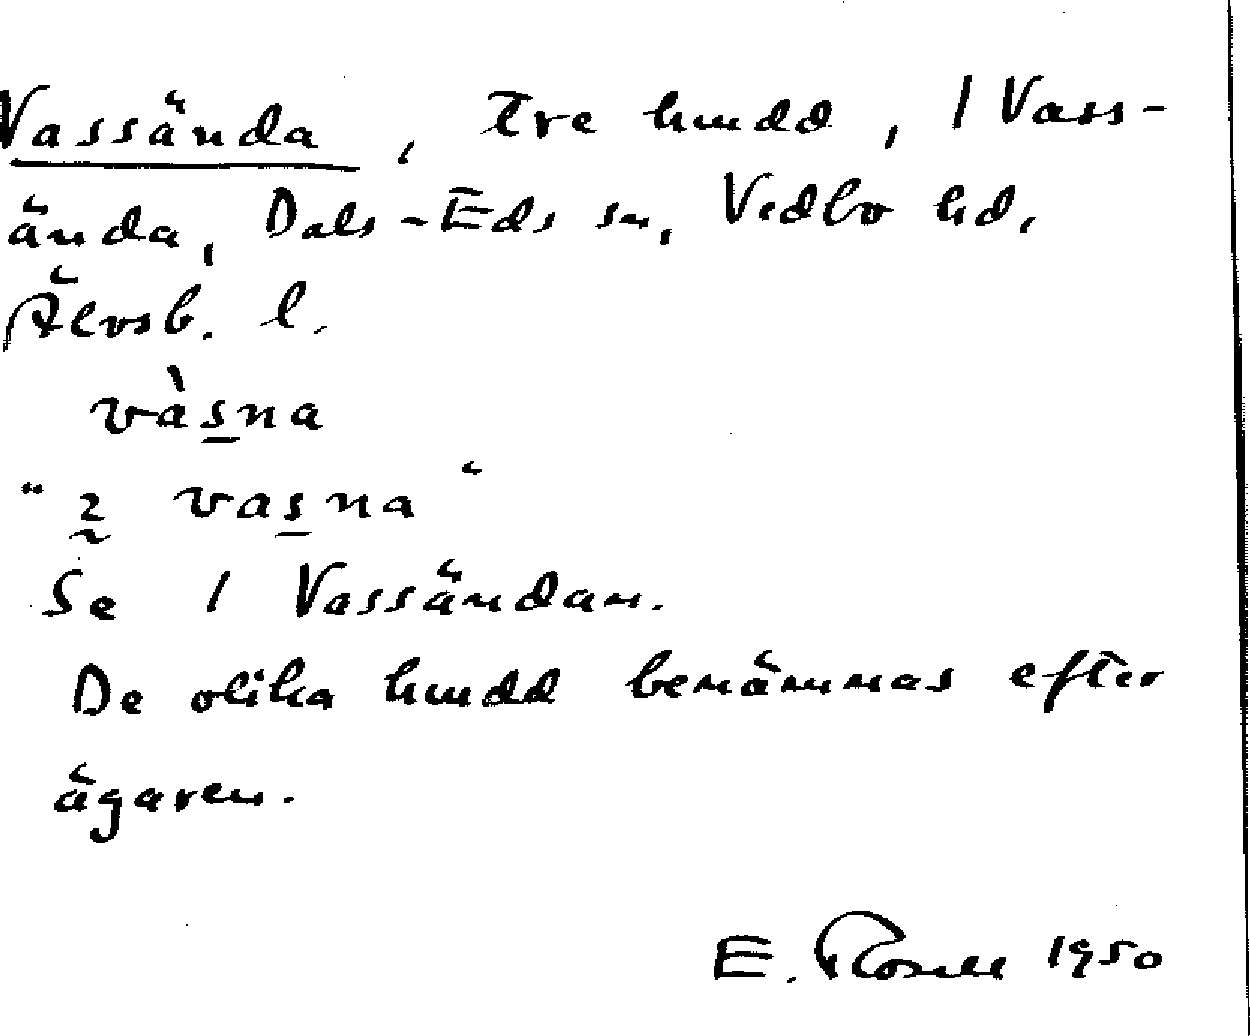 Vassända, tre hmdd, 1 Vass-
ända, Dals-Eds sn, Vedbo hd,
Älvsb. l.
vàsna
"2 vasna"
Se 1 Vassändan.
De olika hmdd benämnas efter
ägaren.
E. Rosell 1950